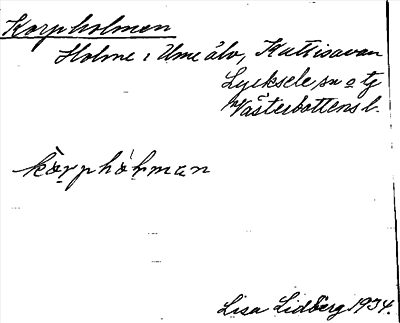 Korpholmen
Holme i Ume älv, Kattisavan
Lycksele sn o tg
Västerbottens l.
kòrphòḷman
Lisa Lidberg 1934.